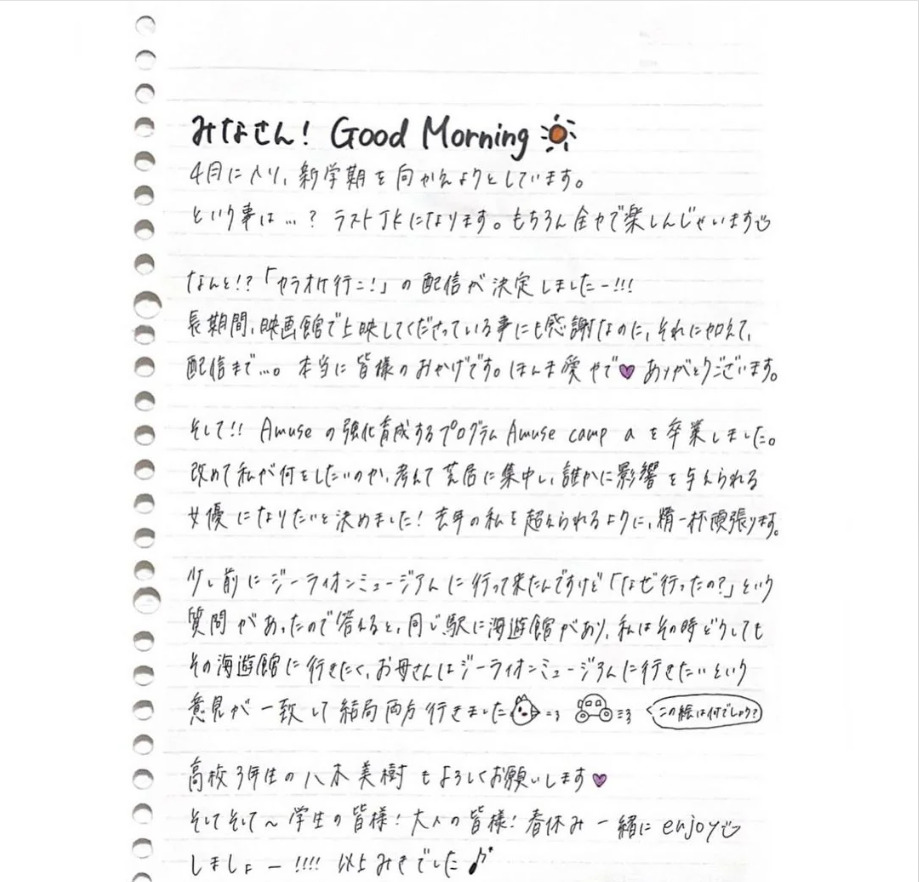 みなさん! Good Morning
4月に入り、新学期を向かえようとしています。
という事は…? ラストJKになります。もちろん全力で楽しんじゃいます
なんと!?「カラオケ行こ!」の配信が決定しましたー!!!
長期間、映画館で上映してくださっている事にも感謝なのに、それに加えて、
配信まで…。本当に皆様のおかげです。ほんま愛やで♥ ありがとうございます。
そして!! Amuseの強化育成するプログラムAmuse camp aを卒業しました。
改めて私が何をしたいのか、考えて芝居に集中し、誰かに影響を与えられる
女優になりたいと決めました! 去年の私を超えられるように、精一杯頑張ります。
少し前にジーライオンミュージアムに行って来たんですけど「なぜ行ったの?」という
質問があったので答えると、同じ駅に海遊館があり、私はその時どうしても
その海遊館に行きたく、お母さんはジーライオンミュージアムに行きたいという
意見が一致して結局両方行きました この絵は何でしょう?
高校3年生の八木美樹もよろしくお願いします♥
そしてそして〜学生の皆様! 大人の皆様! 春休み一緒にenjoy
しましょー!!!! 以上みきでした♪